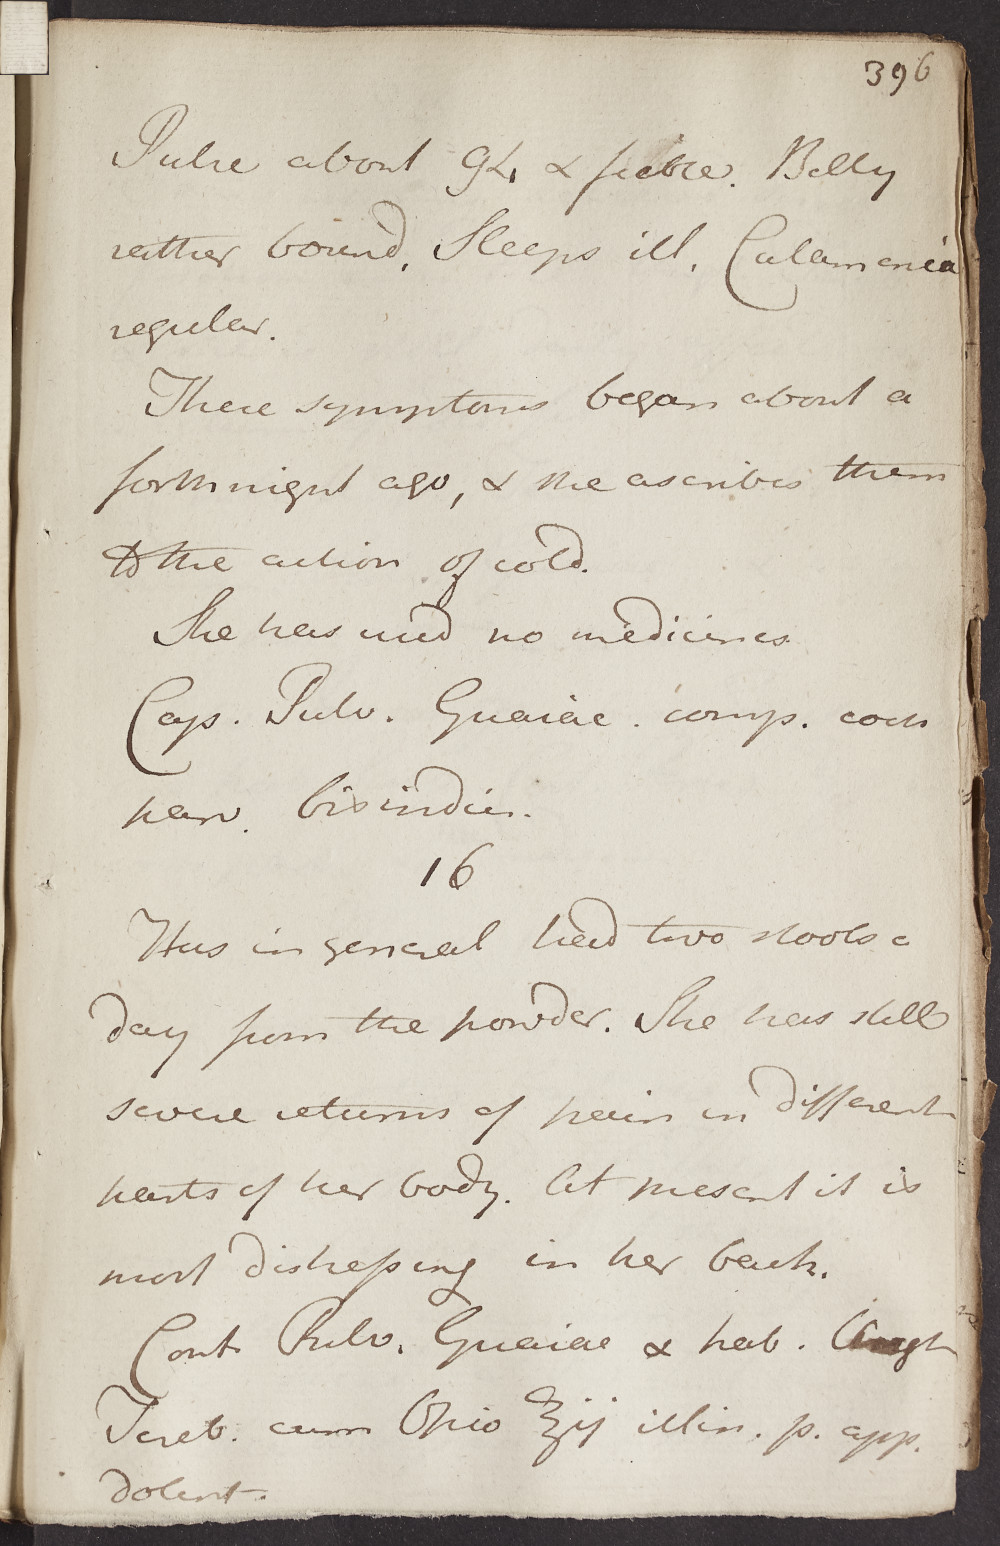 396
Pulse about 94, & feeble. Belly
rather bound, Sleeps ill, Catamenia
regular.
These symptoms began about a
forthnight ago, & she ascribes them
to the action of cold.
She has used no medicines
Cap. Pulv. Guaiac. comp. coch
parv. bis indies.
16
Has in general had two stools a
day from the powder. She has still
severe returns of pain in different
parts of her body. At present it is
most distressing in her back.
Cont. Pulv. Guaiac & hab.
Tereb. cum Opio ℥ij illin. p. app.
dolent.